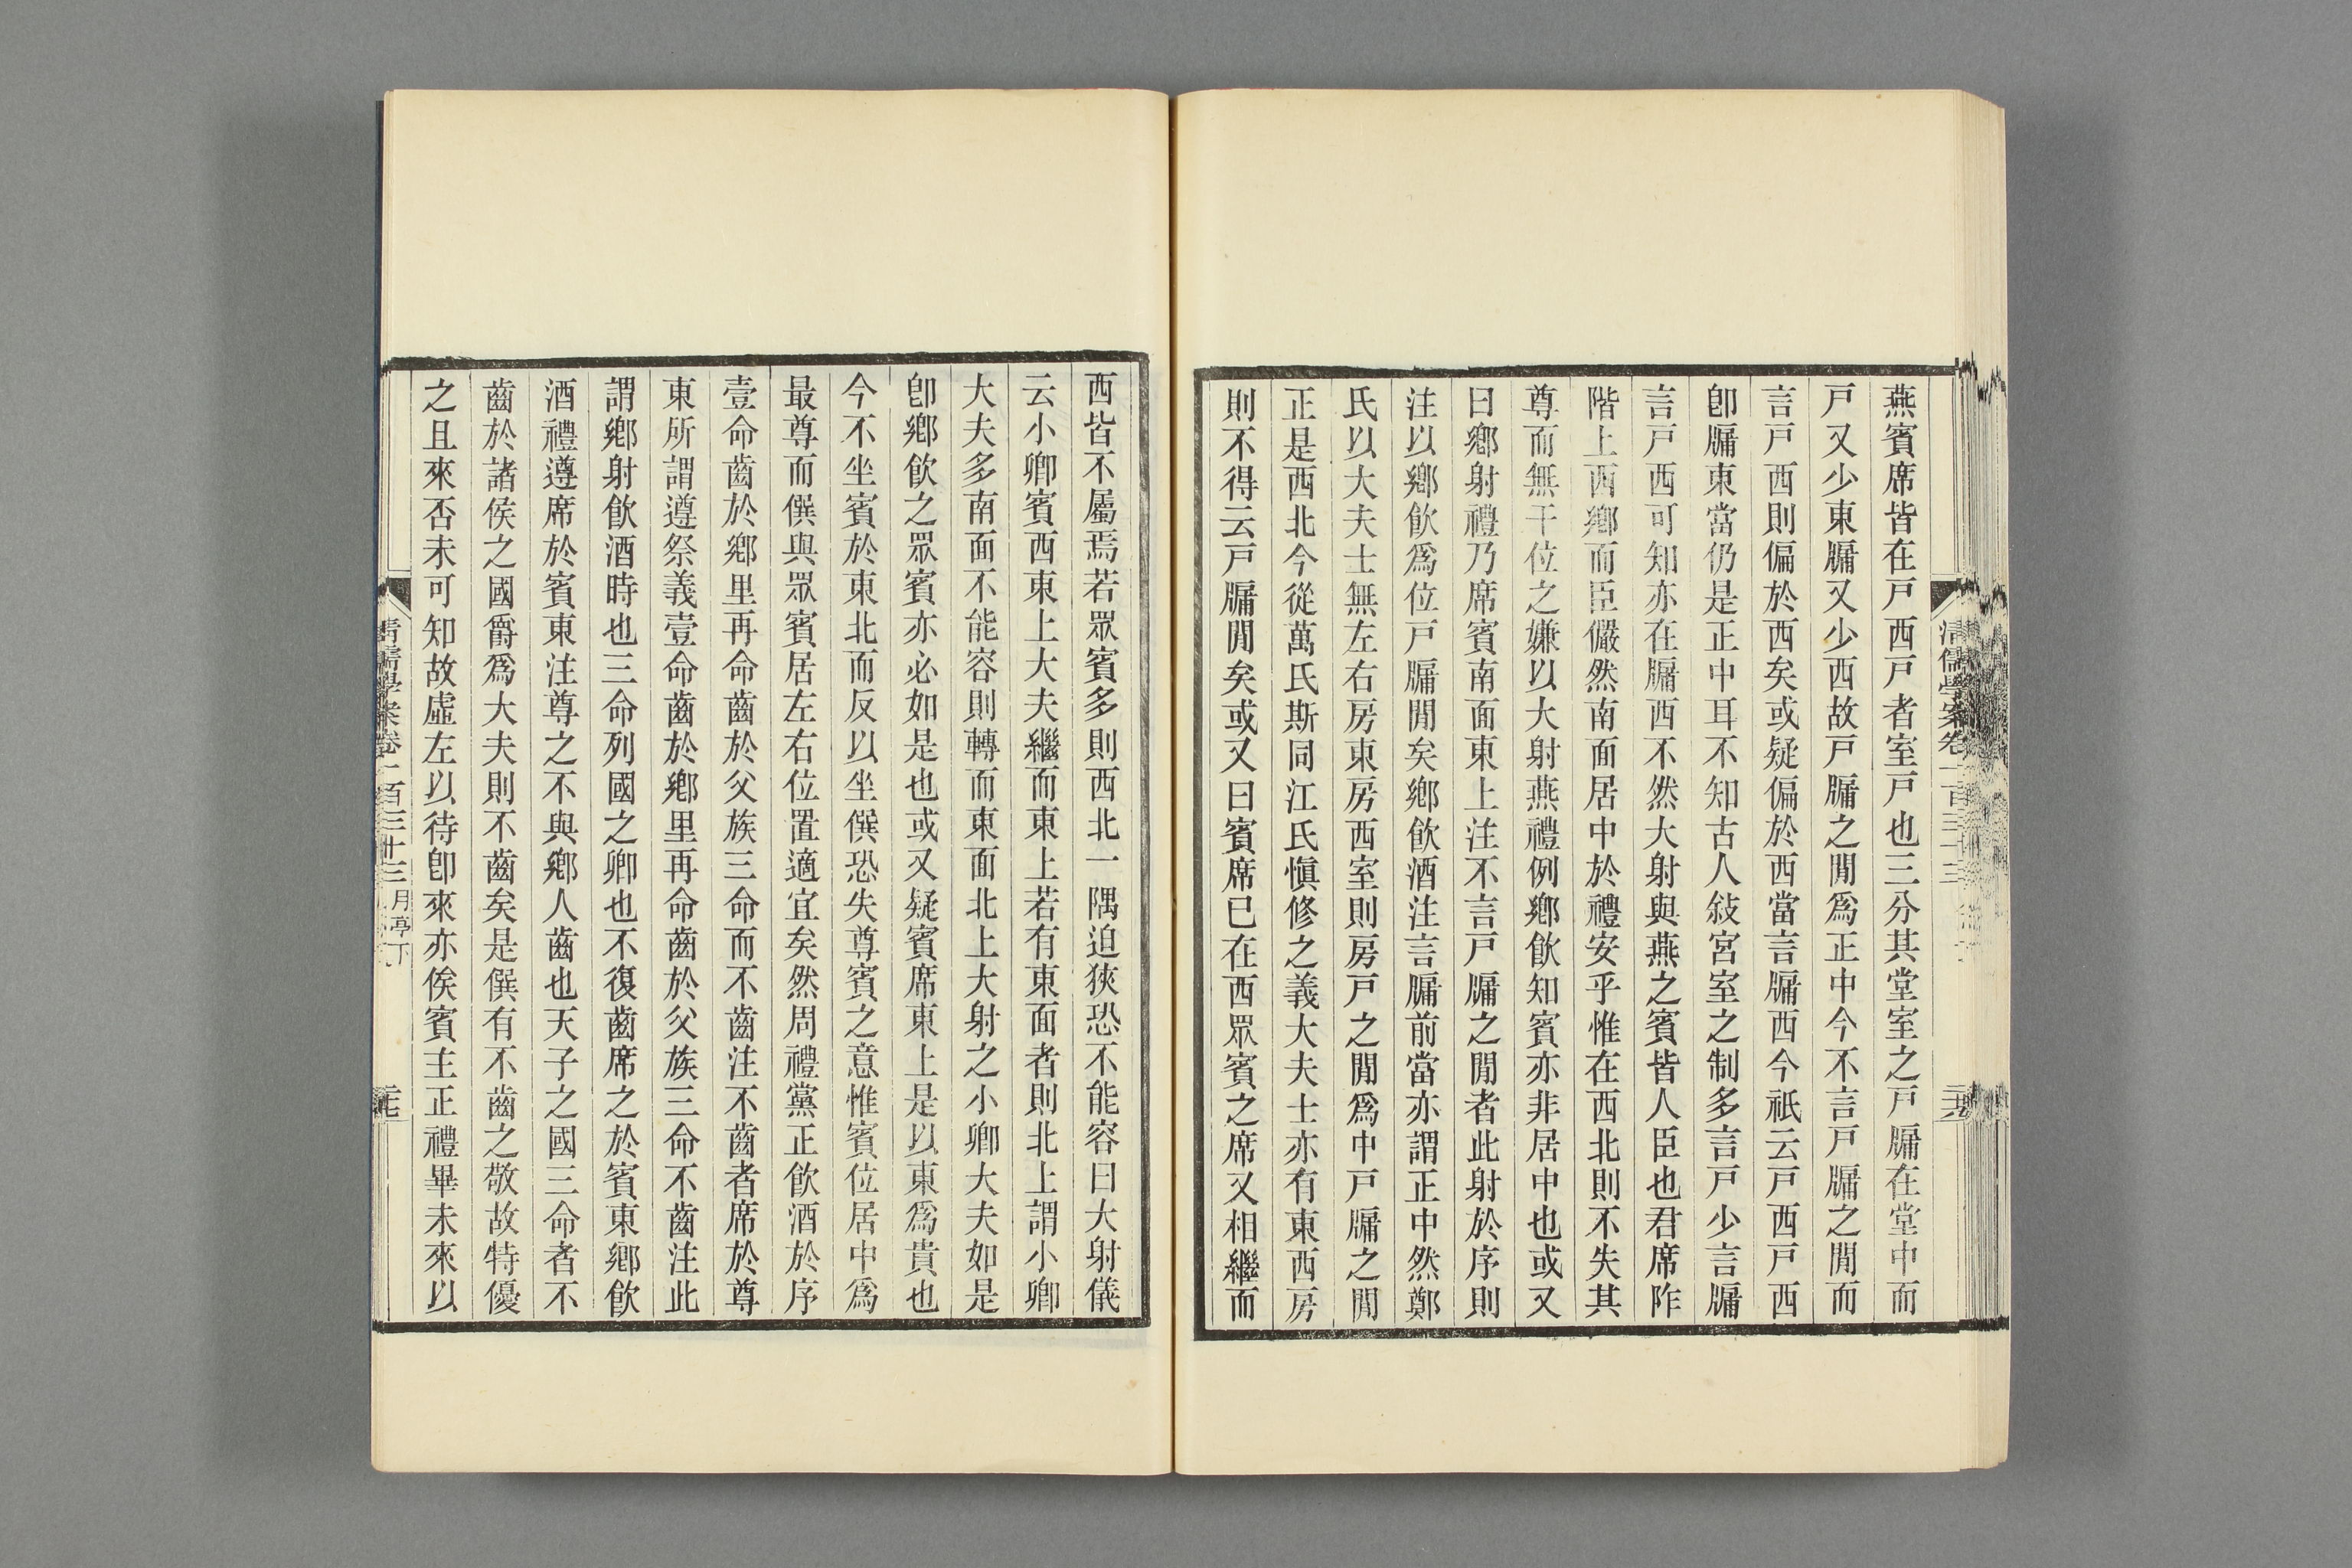 燕賓席皆在戸西戸者室戸也三分其堂室之戸牖在堂中而
戸又少東牖又少西故戸牖之閒爲正中今不言戸牖之閒而
言戸西則偏於西矣或疑偏於西當言牖西今祇云戸西戸西
卽牖東當仍是正中耳不知古人敍宮室之制多言戸少言牖
言戸西可知亦在牖西不然大射與燕之賓皆人臣也君席阼
階上西鄉而臣儼然南面居中於禮安乎惟在西北則不失其
尊而無干位之嫌以大射燕禮例鄉飮知賓亦非居中也或又
曰鄉射禮乃席賓南面東上注不言戸牖之閒者此射於序則
注以鄉飮爲位戸牖閒矣鄉飮酒注言牖前當亦謂正中然鄭
氏以大夫士無左右房東房西室則房戸之閒爲中戸牖之閒
正是西北今從萬氏斯同江氏愼修之義大夫士亦有東西房
則不得云戸牖閒矣或又曰賓席已在西眾賓之席又相繼而
西皆不屬焉若眾賓多則西北一隅迫狹恐不能容曰大射儀
云小卿賓西東上大夫繼而東上若有東面者則北上謂小卿
大夫多南面不能容則轉而東面北上大射之小卿大夫如是
卽鄉飮之眾賓亦必如是也或又疑賓席東上是以東爲貴也
今不坐賓於東北而反以坐僎恐失尊賓之意惟賓位居中爲
最尊而僎與眾賓居左右位置適宜矣然周禮黨正飮酒於序
壹命齒於鄉里再命齒於父族三命而不齒注不齒者席於尊
東所謂遵祭義壹命齒於鄉里再命齒於父族三命不齒注此
謂鄉射飮酒時也三命列國之卿也不復齒席之於賓東鄉飮
酒禮遵席於賓東注尊之不與鄉人齒也天子之國三命者不
齒於諸侯之國爵爲大夫則不齒矣是僎有不齒之敬故特優
之且來否未可知故虛左以待卽來亦俟賓主正禮畢未來以
清儒學案卷一百三十三 月亭下